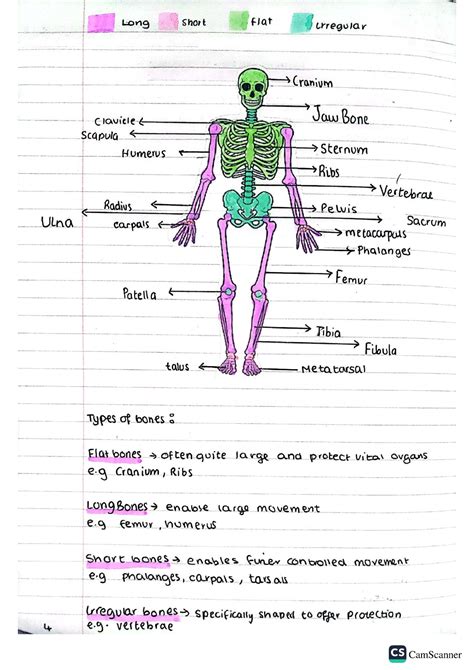 Long Short flat irregular
Cranium
Jaw Bone
Clavicle
Scapula
Humerus
Sternum
Ribs
Vertebrae
Radius
Pelvis
Ulna
carpals
Sacrum
metacarpals
Phalanges
Femur
Patella
Tibia
Fibula
talus
Metatarsal
Types of bones :
Flat bones → often quite large and protect vital organs
e.g Cranium, Ribs
Long Bones → enable large movement
e.g femur, humerus
Short bones → enables finer controlled movement
e.g phalanges, carpals, tarsals
Irregular bones → Specifically shaped to offer protection
e.g. vertebrae
4
CS CamScanner